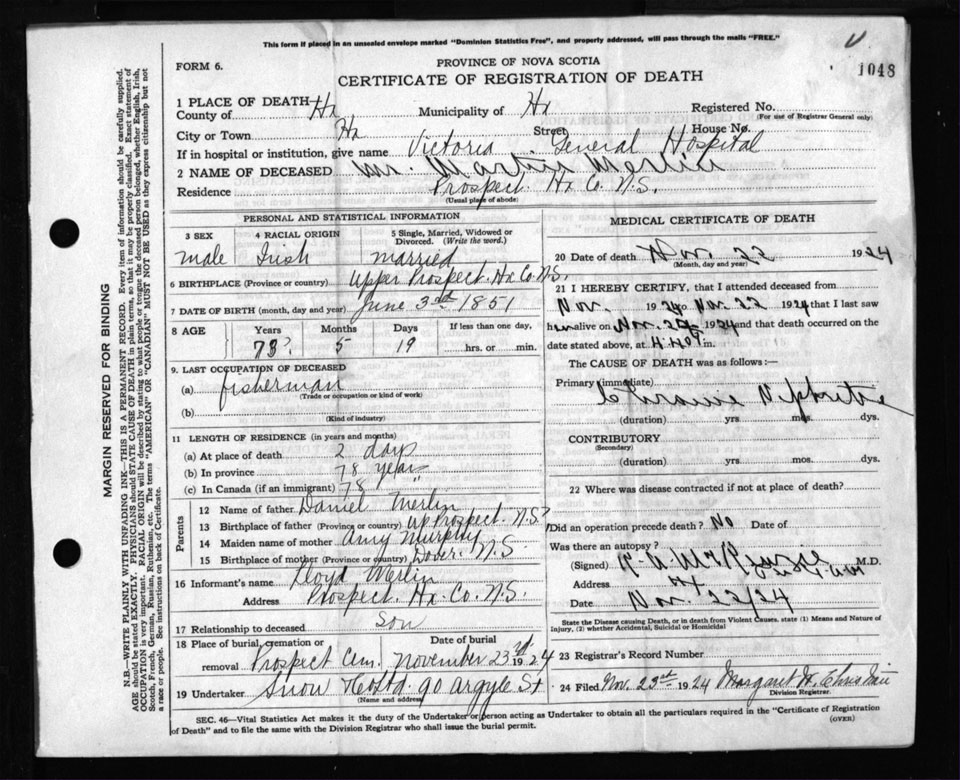 This form if placed in an unsealed envelope marked "Dominion Statistics Free", and properly addressed, will pass through the mails "FREE."
FORM 6.
PROVINCE OF NOVA SCOTIA
CERTIFICATE OF REGISTRATION OF DEATH
1048
1 PLACE OF DEATH
County of Hx Municipality of Hx Registered No.
(For use of Registrar General only)
City or Town Hx Street House No.
If in hospital or institution, give name Victoria General Hospital
2 NAME OF DECEASED Mr. Martin Merlin
Residence Prospect. Hx Co. N.S.
(Usual place of abode)
PERSONAL AND STATISTICAL INFORMATION
3 SEX 4 RACIAL ORIGIN 5 Single, Married, Widowed or Divorced. (Write the word.)
male Irish married
6 BIRTHPLACE (Province or country) Upper Prospect. Hx Co. N.S.
7 DATE OF BIRTH (month, day and year) June 3rd 1851
8 AGE Years Months Days If less than one day,
73? 5 19 hrs. or min.
9. LAST OCCUPATION OF DECEASED
(a) fisherman
(Trade or occupation or kind of work)
(b)
(Kind of industry)
11 LENGTH OF RESIDENCE (in years and months)
(a) At place of death 2 days
(b) In province 78 years
(c) In Canada (if an immigrant) 78 "
Parents
12 Name of father Daniel Merlin
13 Birthplace of father (Province or country) Up Prospect. N.S?
14 Maiden name of mother Amy Murphy
15 Birthplace of mother (Province or country) Dover. N.S.
16 Informant's name Lloyd Merlin
Address Prospect. Hx. Co. N.S.
17 Relationship to deceased Son
18 Place of burial, cremation or removal Prospect Cem. Date of burial November 23rd 1924
19 Undertaker Snow & Co Ltd. 90 Argyle St
(Name and address)
MEDICAL CERTIFICATE OF DEATH
20 Date of death Nov. 22 1924
(Month, day and year)
21 I HEREBY CERTIFY, that I attended deceased from
Nov. 1924 to Nov. 22 1924 that I last saw
him alive on Nov. 1924 and that death occurred on
date stated above, at 4.40 m.
The CAUSE OF DEATH was as follows:—
Primary (immediate)
(duration) yrs. mos. dys.
CONTRIBUTORY
(Secondary)
(duration) yrs. mos. dys.
22 Where was disease contracted if not at place of death?
Did an operation precede death? No Date of
Was there an autopsy?
(Signed) M.D.
Address Hx
Date Nov. 22/24
State the Disease causing Death, or in death from Violent Causes, state (1) Means and Nature of Injury, (2) whether Accidental, Suicidal or Homicidal
23 Registrar's Record Number
24 Filed Nov. 23rd 1924 Margaret
Division Registrar.
SEC. 46—Vital Statistics Act makes it the duty of the Undertaker or person acting as Undertaker to obtain all the particulars required in the "Certificate of Registration of Death" and to file the same with the Division Registrar who shall issue the burial permit.
(OVER)
MARGIN RESERVED FOR BINDING
N.B.—WRITE PLAINLY WITH UNFADING INK—THIS IS A PERMANENT RECORD. Every item of information should be carefully supplied.
AGE should be stated EXACTLY. PHYSICIANS should STATE CAUSE OF DEATH in plain terms, so that it may be properly classified. Exact statement of
OCCUPATION is very important. RACIAL ORIGIN will be described by stating to what people or tongue the deceased person belonged, whether English, Irish,
Scotch, French, German, Russian, Ruthenian, etc. The terms "AMERICAN" OR "CANADIAN" MUST NOT BE USED as they express citizenship but not
a race or people. See instructions on back of Certificate.